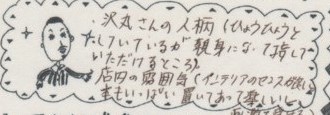 ・沢丸さんの人柄(ひょうひょうと
していているが親身になって指して
いただけるところ)。
店内の雰囲気(インテリアのセンスが良い
本もいっぱい置いてあって楽しいし、